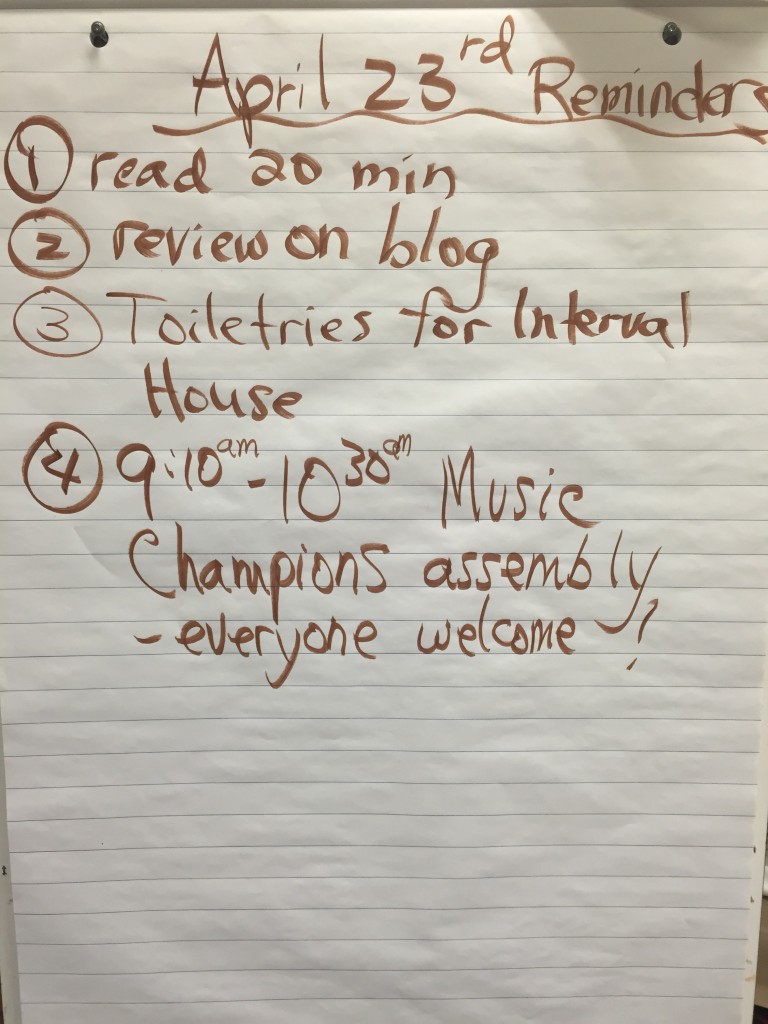 April 23rd Reminders
1 read 20 min
2 review on blog
3 Toiletries for Interval
House
4 9:10am - 10 30am Music
Champions assembly
- everyone welcome !